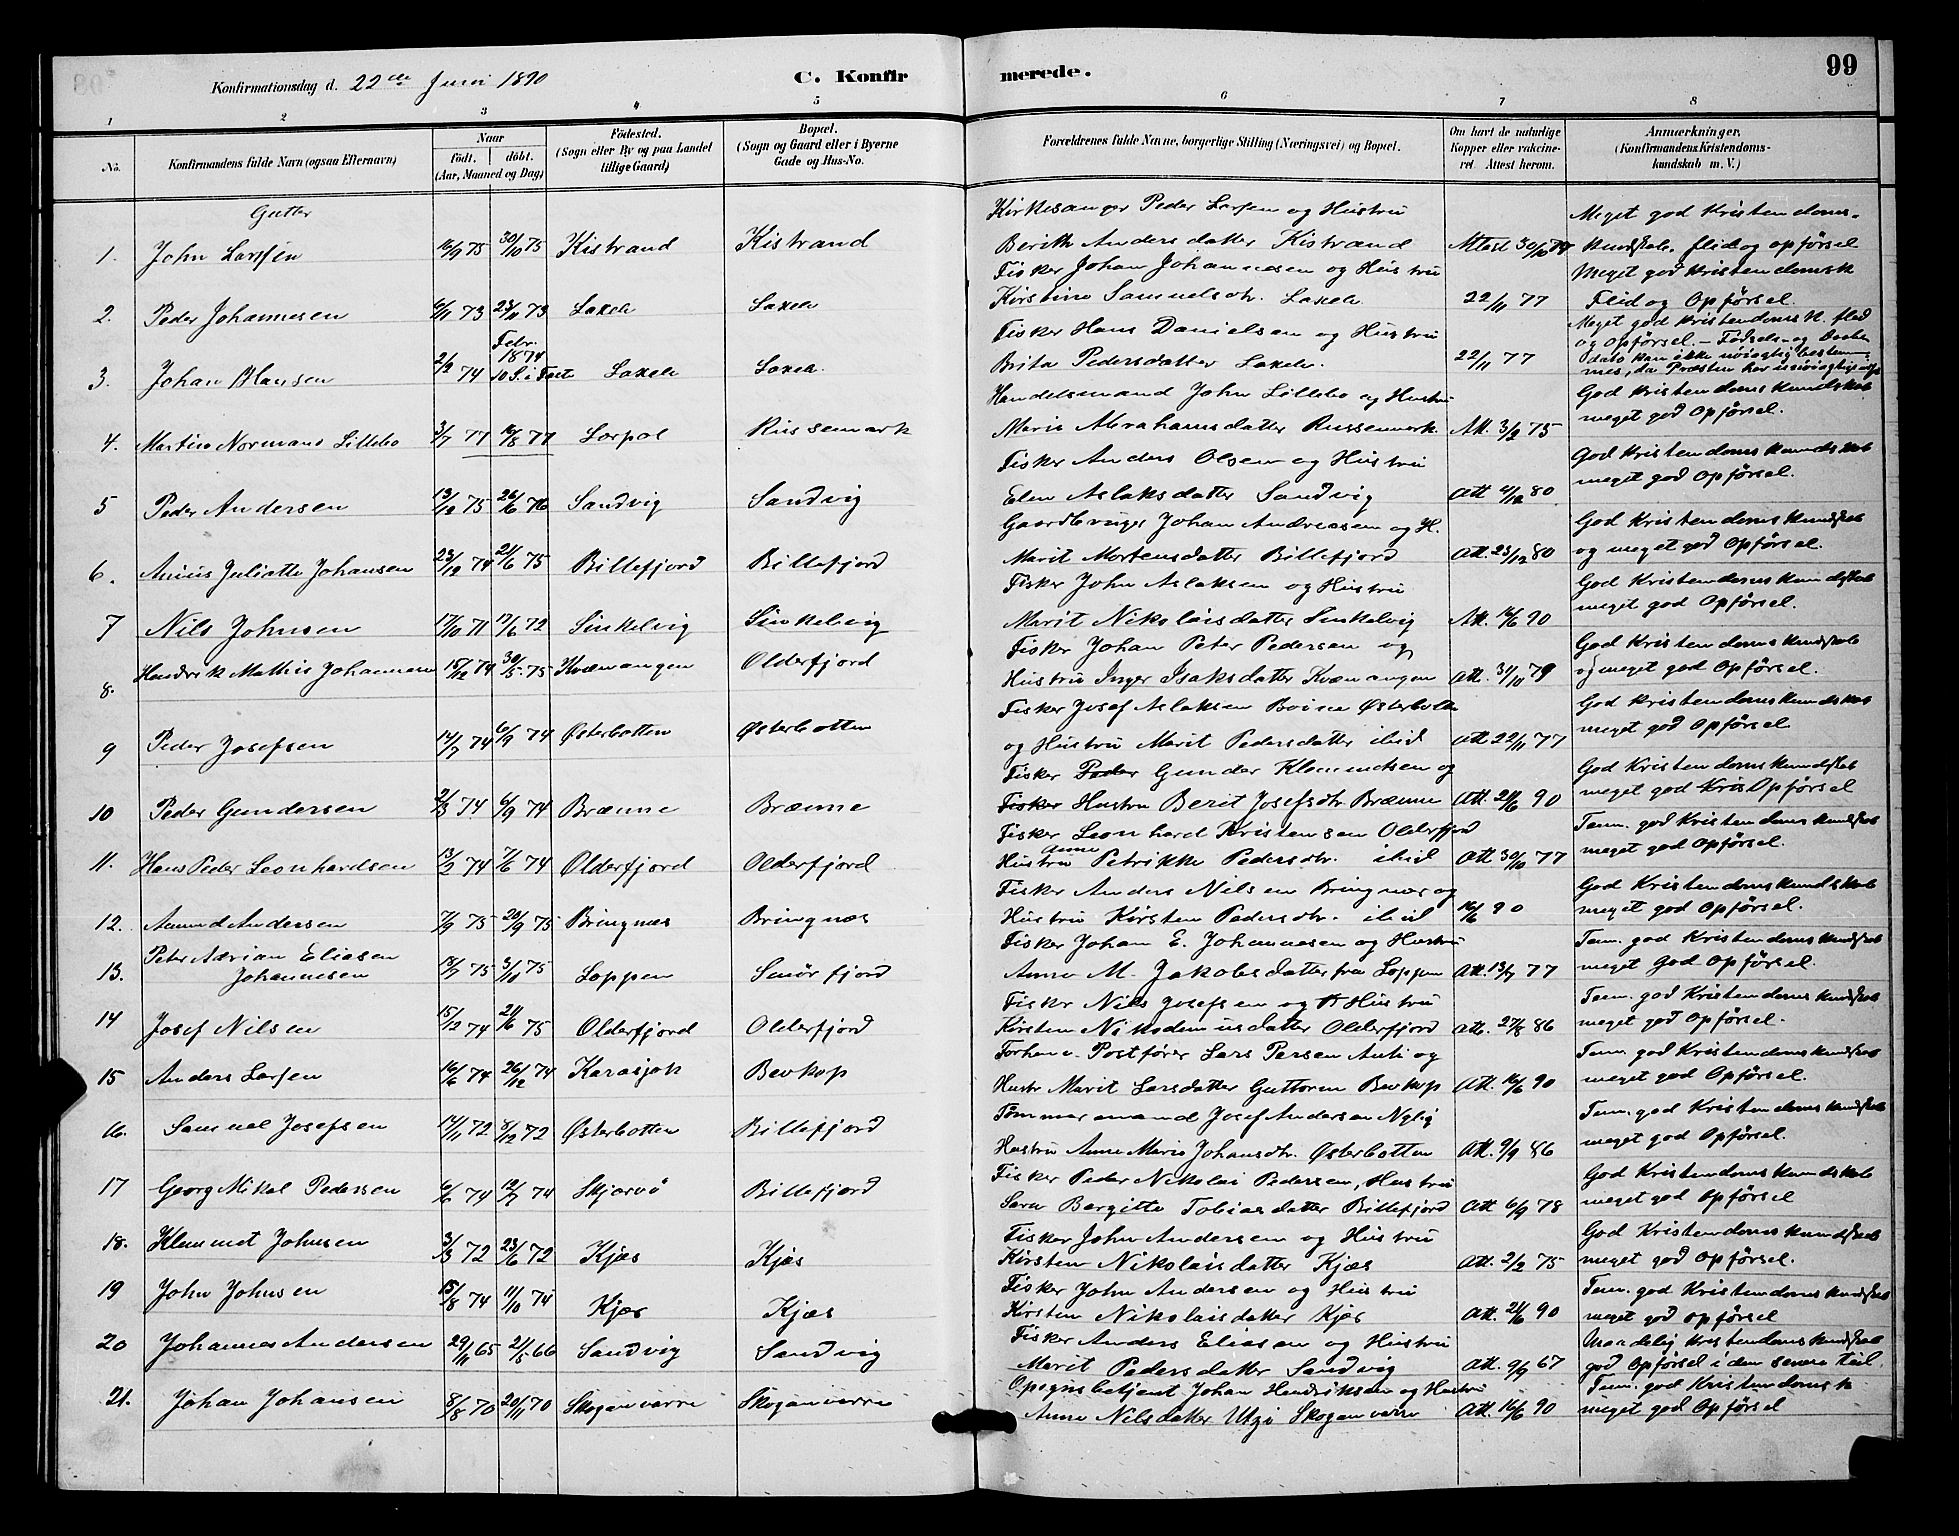 Konfirmationsdag d. 22de Juni 1890
C. Konfirmerede.
99
1 2 3 4 5 6 7 8
No. Konfirmandens fulde Navn (ogsaa Efternavn) Naar født. døbt. (Aar, Maaned og Dag) Fødested. (Sogn eller By og paa Landet tillige Gaard) Bopæl. (Sogn og Gaard eller i Byerne Gade og Hus-No. Forældrenes fulde Navne, borgerlige Stilling (Næringsvei) og Bopæl. Om havt de naturlige Kopper eller vakcineret. Attest herom. Anmærkninger, (Konfirmandens Kristendomskundskab m. V.)
Gutter
Kirkesanger Peder Larsen og Hustru Meget god Kristendoms-
1. John Larsen 16/9 75 30/10 75 Kistrand Kistrand Berith Andersdatter Kistrand Attest 30/10 kundskab, flid og opførsel
Fisker Johan Johannesen og Hustru Meget god Kristendomsk
2. Peder Johannesen 6/11 73 23/11 73 Laxelv Laxelv Kirstine Samuelsdtr. Laxelv 22/11 77 Flid og Opførsel.
Fisker Hans Danielsen og Hustru Meget god Kristendomsk. flid og Opførsel. - Fødsels- og Daabs-
3. Johan Hansen 2/2 74 Febr. 1874 10 S. i Fast Laxelv Laxelv Brita Pedersdatter Laxelv. 22/11 77 dato kan ikke nøiagtig bestemmes, da Præsten har
Handelsmand John Lillebo og Hustru God Kristendoms Kundskab
4. Martin Normann Lillebo 3/7 77 16/8 77 Russemark Maria Abrahamsdatter Russemark. Att. 3/2 75 meget god Opførsel.
Fisker Anders Olsen og Hustru God Kristendoms kundskab
5 Peder Andersen 13/12 75 26/6 76 Sandvig Sandvig Elen Aslaksdatter Sandvig Att 80 meget god Opførsel.
Gaardbruger Johan Andreasen og H. God Kristendomskundskab
6. Juliatte Johansen 23/12 74 21/6 75 Billefjord Billefjord Marit Mortensdatter Billefjord Att. 23/12 80 og meget god Opførsel.
Fisker John Aslaksen og Hustru God Kristendomskundskab
7 Nils Johnsen 17/10 71 17/6 72 Sinkelvig Sinkelvig Marit Nikolaisdatter Sinkelvig Att. 16/6 90 meget god Opførsel.
Fisker Johan Peter Pedersen og God Kristendomskundskab
8. Hendrik Mathis Johannsen 15/12 74 30/5 75 Kvænangen Olderfjord Hustru Inger Isaksdatter Kvænangen Att. 31/10 79 og meget god Opførsel.
Fisker Josef Aslaksen Østerbotten God Kristendomskundskab
9 Peder Josefsen 14/7 74 6/9 74 Østerbotten Østerbotten og Hustru Marit Pedersdatter ibid Att 22/11 77 meget god Opførsel
Fisker Peder Gunder Klemmetsen og God Kristendomskundskab
10 Peder Gundersen 2/3 74 6/9 74 Brænne Brænne Fisker Hustru Berit Josefsdtr. Brænne Att. 21/6 90 meget god Kris Opførsel
Fisker Leonhard Kristensen Olderfjord Tem. god Kristendomskundskab
11. Hans Peder Leonhardsen 13/2 74 7/6 74 Olderfjord Olderfjord Hustru Anne Petrikke Pedersdtr. ibid Att 30/10 77 meget god Opførsel.
Fisker Anders Nilsen Bringnæs og God Kristendomskundskab
12. Amund Andersen 7/9 75 20/9 75 Bringnæs Bringnæs Hustru Kirsten Pedersdtr. ibid 16/6 90 meget god Opførsel.
Peter Adrian Eliasen Fisker Johan E. Johannesen og Hustru Tem. god Kristendomskundskab
13. Johannesen 18/7 75 31/10 75 Loppen Smørfjord Anne M. Jakobsdatter fra Loppen Att. 13/7 77 meget God Opførsel.
Fisker Nils Josefsen og Hustru Tem. god Kristendomskundskab
14 Josef Nilsen 15/12 74 21/6 75 Olderfjord Olderfjord Kirsten Nikodemusdatter Olderfjord Att. 27/8 86 meget god Opførsel.
Forhenv. Postfører Lars Persen Anti og Tem. god Kristendomskundskab
15 Anders Larsen 16/6 74 26/12 74 Karasjok Bevkop Hustr Marit Larsdatter Guttorm Bevkop Att. 16/6 90 meget god Opførsel.
Tømmermand Josef Andersen Nylig Tem. god Kristendomskundskab
16. Samuel Josefsen 14/11 72 31/12 72 Østerbotten Billefjord Hustru Anne Maria Johansdtr. Østerbotten Att. 9/9 86 meget god Opførsel.
Fisker Peder Nikolai Pedersen, Hustru God Kristendomskundskab
17 Georg Mikal Pedersen 6/6 74 12/7 74 Skjærvø Billefjord Sara Bergitte Tobiasdatter Billefjord Att 6/9 78 meget god Opførsel
Fisker John Andersen og Hustru God Kristendomskundskab
18. Klemmet Johnsen 3/3 72 23/6 72 Kjæs Kjæs Kirsten Nikolaisdatter Kjæs Att. 2/2 75 meget god Opførsel.
Fisker John Andersen og Hustru Tem. god Kristendomskundskab
19 John Johnsen 15/8 74 11/10 74 Kjæs Kjæs Kirsten Nikolaisdatter Kjæs Att. 21/6 90 meget god opførsel
Fisker Anders Eliasen og Hustru Maadelig Kristendomskundskab
20 Johannes Andersen 29/11 65 21/5 66 Sandvig Sandvig Marit Pedersdatter Sandvig Att. 9/9 67 god Opførsel i den senere tid.
Opsynsbetjent Johan Hendriksen og Hustru Tem. god Kristendomsk
21. Johan Johansen 8/8 70 20/11 70 Skoganvarre Skoganvarre Anne Nilsdatter Utzi Skoganvarre Att. 16/6 90 meget god Opførsel